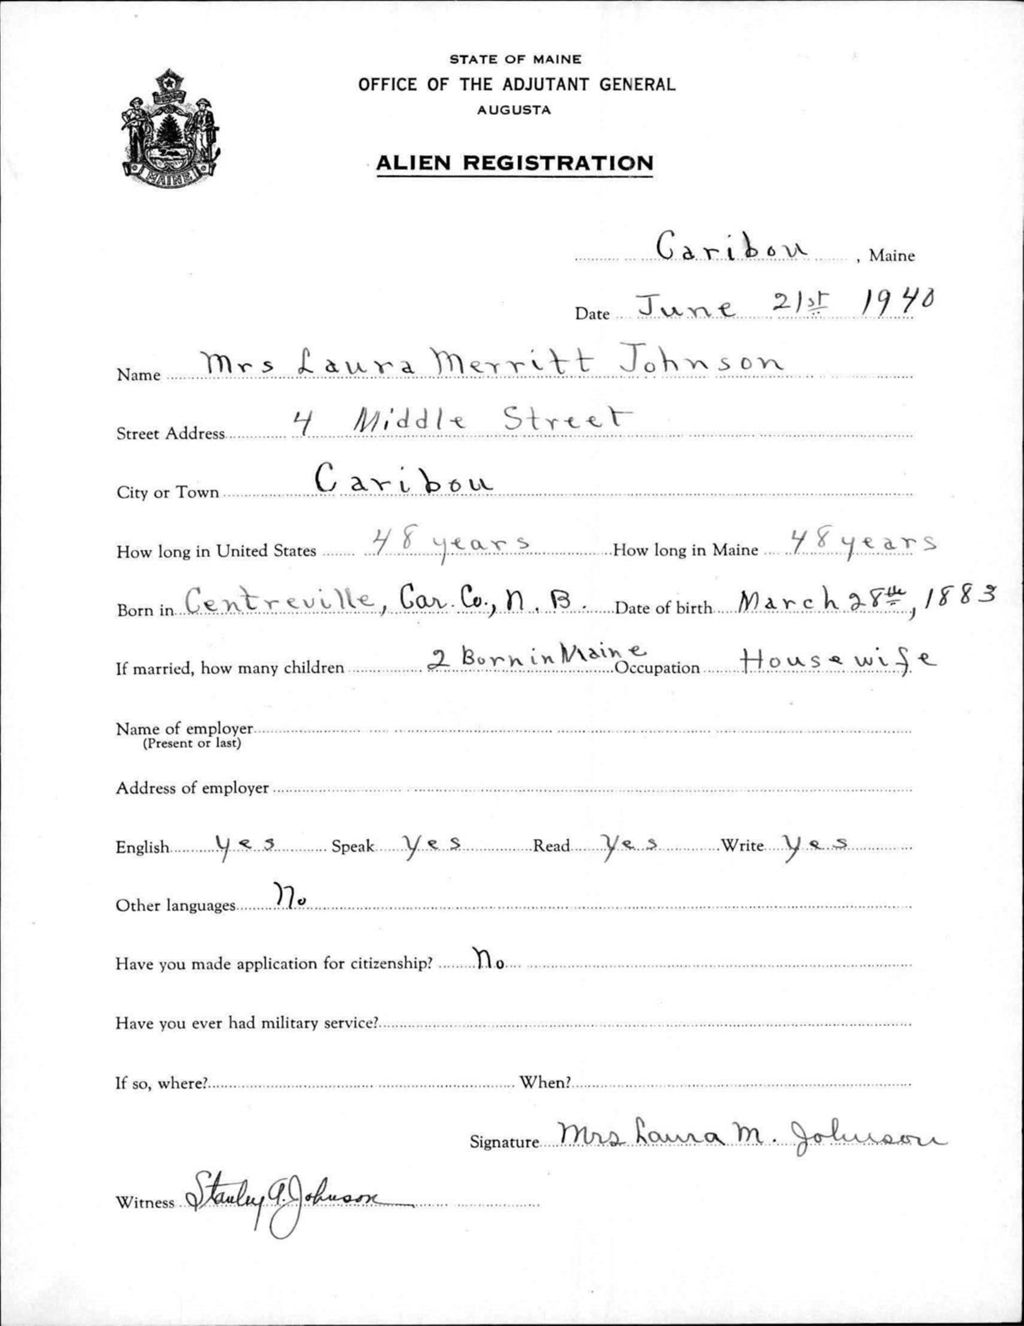 STATE OF MAINE
OFFICE OF THE ADJUTANT GENERAL
AUGUSTA
ALIEN REGISTRATION
MAINE
Caribou, Maine
Date June 21st 1940
Name Mrs Laura Merritt Johnson
Street Address 4 Middle Street
City or Town Caribou
How long in United States 48 years How long in Maine 48 years
Born in Centreville, Car. Co., N. B. Date of birth March 28th, 1883
If married, how many children 2 Born in Maine Occupation Housewife
Name of employer
(Present or last)
Address of employer
English yes Speak Yes Read Yes Write Yes
Other languages No
Have you made application for citizenship? No
Have you ever had military service?
If so, where? When?
Signature Mrs Laura M. Johnson
Witness Stanley A. Johnson